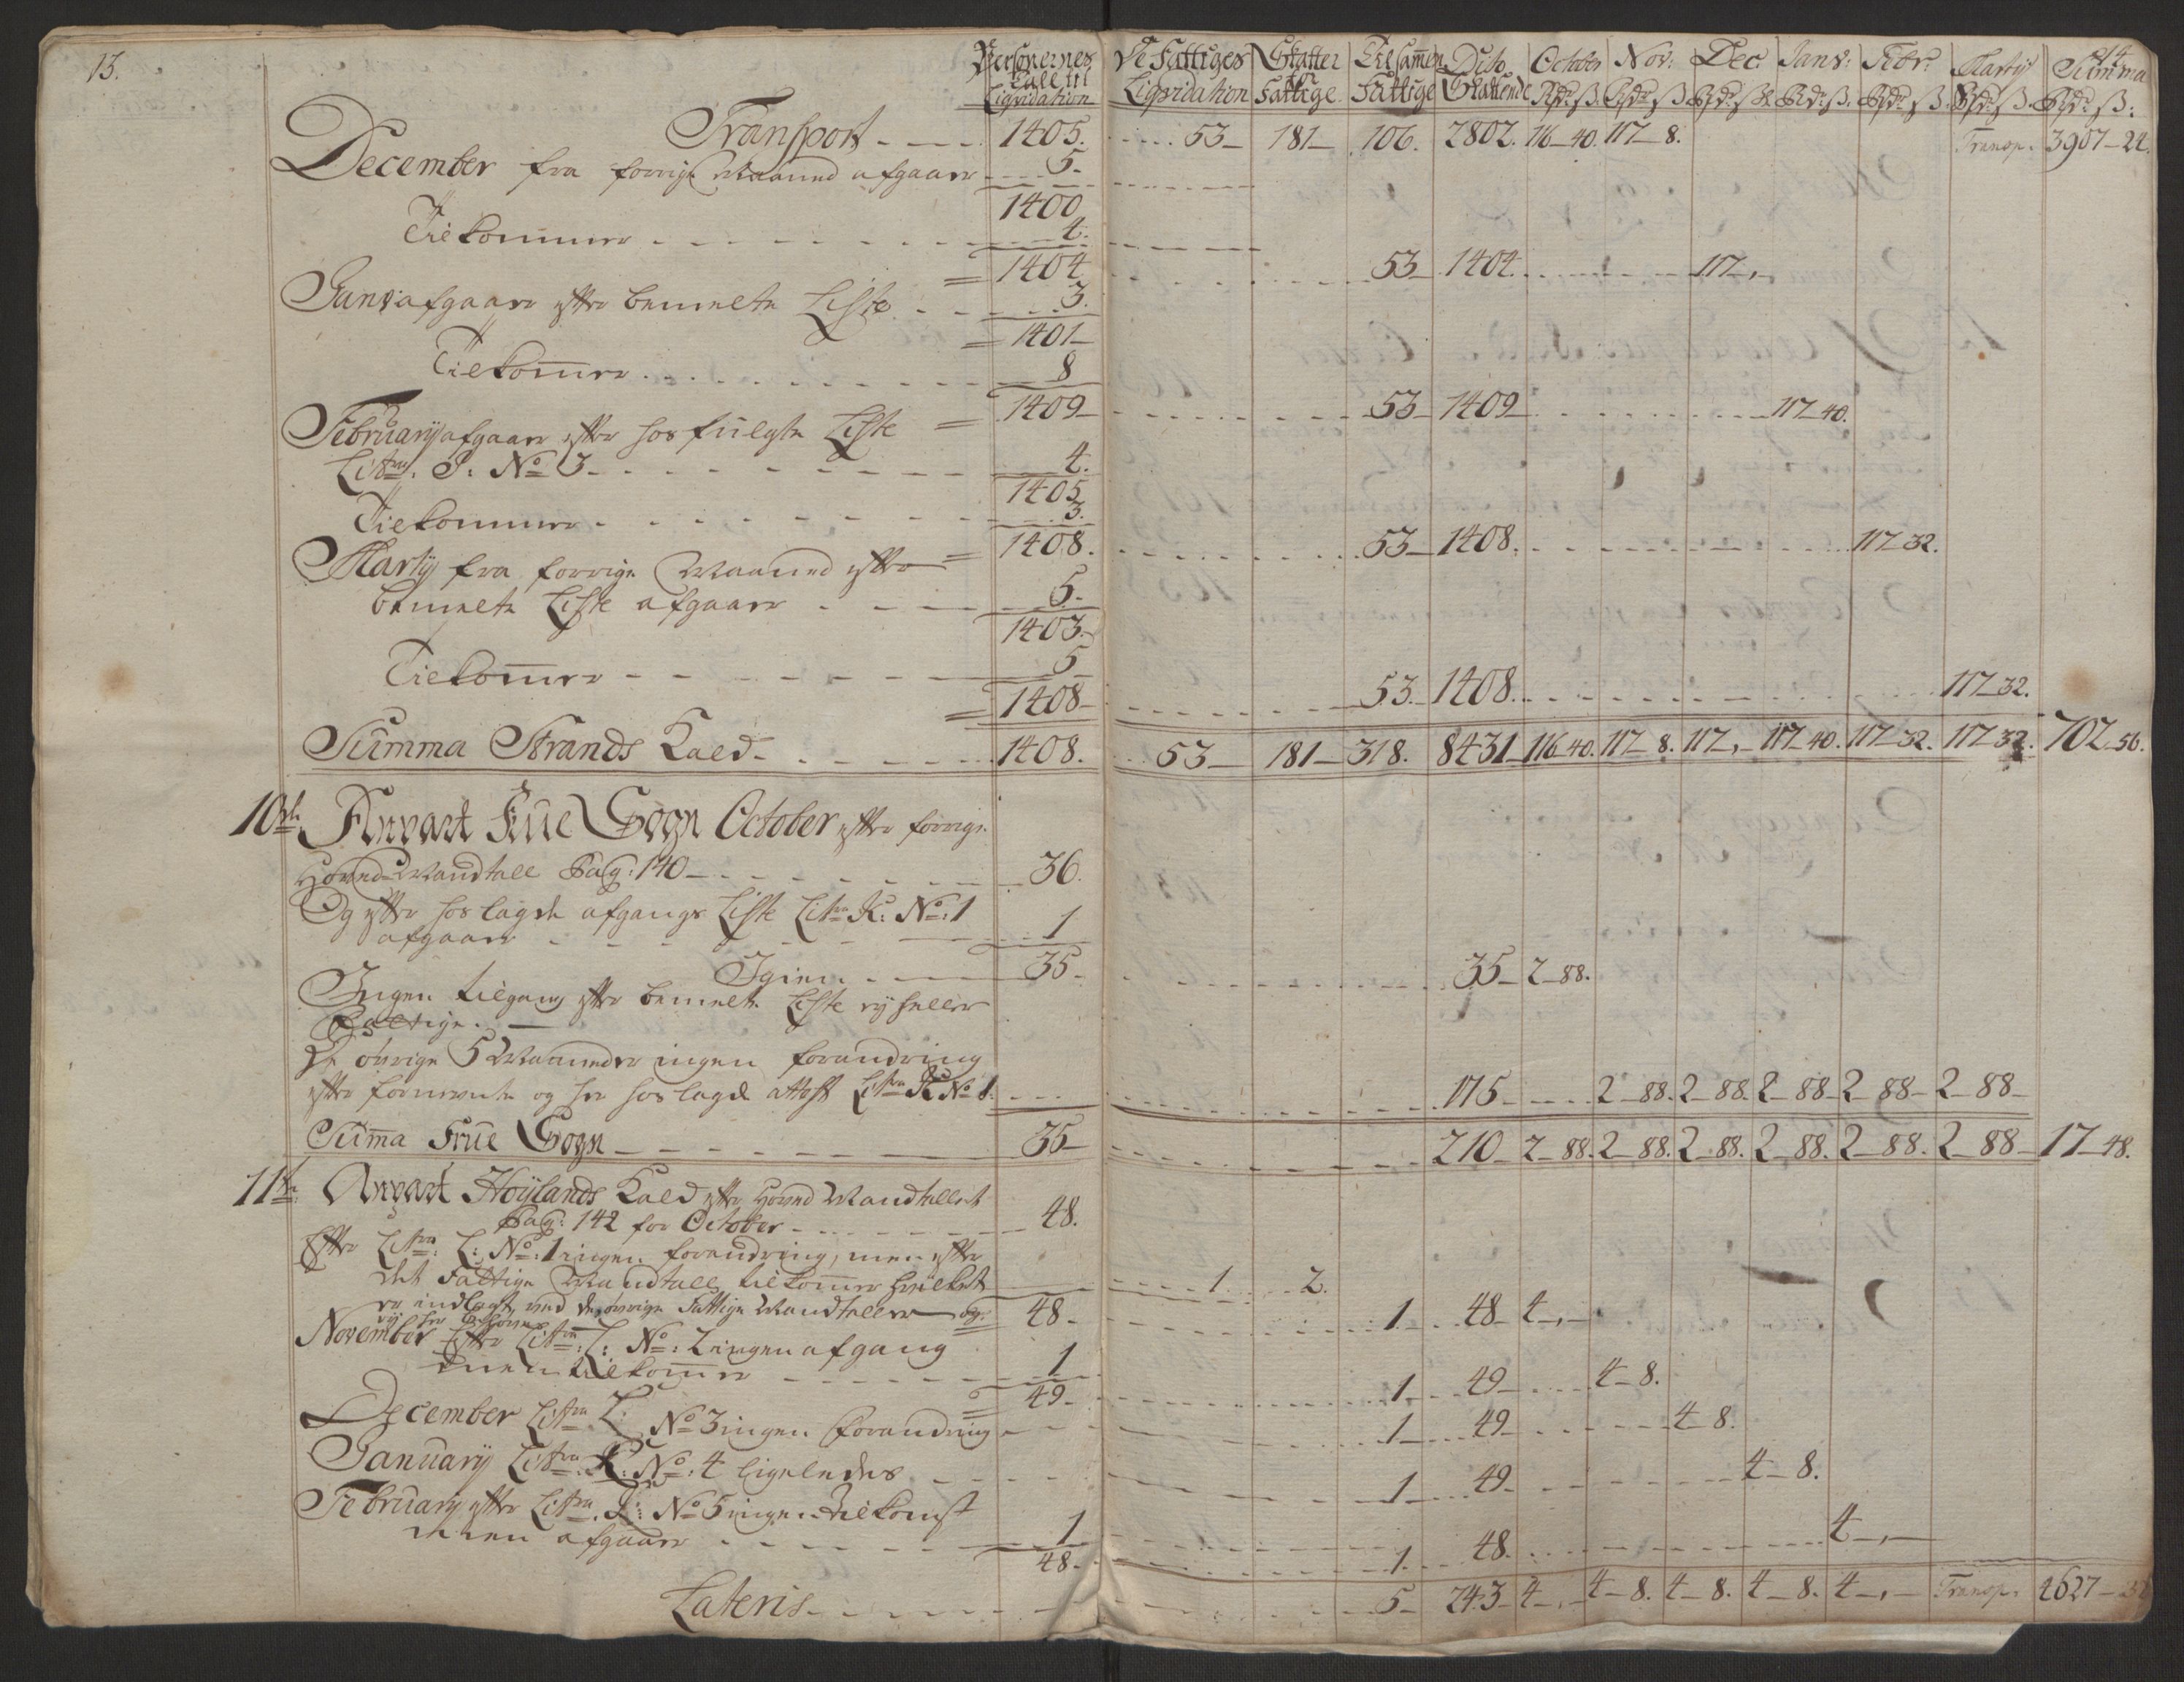 13.
14
Personernes Tall til Liqvidation | De Fattiges Liqvidation | Skatter for Fattige | Tilsammen Fattige | Dito Skattende | October Rdr ß. | Nov: Rdr ß | Dec: Rdr ß. | Janv: Rdr ß. | Febr: Rdr ß. | Martÿ Rdr ß. | Summa Rdr ß:
Transport - - - - 1405. - - - - 53 - 181 - 106. 2802. 116-40. 117-8. Transp. 3907-24.
December fra forrige Maaned afgaaer - - - 5-
1400
Tilkommer - - - - - - - - 4.
= 1404 - - - 53 - 1404. - - - 117-,-
Janv: afgaaer efter bemelte Liste - - - 3.
= 1401-
Tilkom̅er - - - - - - - 8
= 1409- - - - 53 - 1409 - - - 117-40.
Februarÿ afgaaer efter hosfülgte Liste
Litra. I: No 3 - - - - - - 4.
1405
Tilkommer - - - - - - - 3.
= 1408. - - - 53 - 1408. - - - 117-32.
Martÿ fra forrige Maaned efter
bemelte Liste afgaaer - - - - 5-
1403.-
Tilkom̅er - - - - - - - 5
= 1408 - - - 53. 1408. - - - 117-32.
Summa Strands Kald - - - - 1408. - - 53 - 181 - 318. 8431 - 116-40. 117-8. 117-,- 117-40. 117-32. 117-32. 702-56.
10de Anvart Frue Sogn October efter forrige
Hoved-Mandtall Pag: 140 - - - - - 36.
Og efter hoslagde afgangs Liste Litra K: No: 1
afgaaer - - - - - - 1
Igien - - - 35 - - - - 35 - 2-88.
Ingen tilgang efter bemelte Liste eÿ heller
Fattige. -
De övrige 5 Maaneder ingen forandring
efter formente og her hoslagde attest Litra K No 1. - - - 175 - - - 2-88. 2-88. 2-88- 2-88- 2-88-
Sum̅a Frue Sogn - - - - - - 35 - - - - 210 - 2-88. 2-88. 2-88. 2-88. 2-88. 2-88 - 17-48.
11te Anvart Höÿlands Kald efter Hoved Mandtallet
Pag: 142 for October - - - - - 48.
Efter Litra: L: No: 1 ingen forandring, men efter
det Fattige Mandtall tilkom̅er hvilket - - - 1. - - 2.
er indlagt ved de övrige Fattige Mandtaller 48 - - - - 1 - - 48 - 4-,-
November Efter Litra: L: No: 2 ingen afgang
men tilkom̅er - - - - - - 1
= 49 - - - - 1 - - 49 - - - 4-8.
December Litra L: No 3 ingen forandring - - - 1 - - 49 - - - 4-8.
Januarÿ Litra K: No: 4 ligeledes - - - 1 - - 49 - - - 4-8.
Februarÿ efter Litra. L: No 5 ingen tilkomst
men afgaaer - - - - - 1
48 - - - - 1. - - 48. - - - 4-,-
Lateris - - - - - 5 - 243 - 4-,- 4-8. 4-8. 4-8. 4-,- Transp. 4627-32